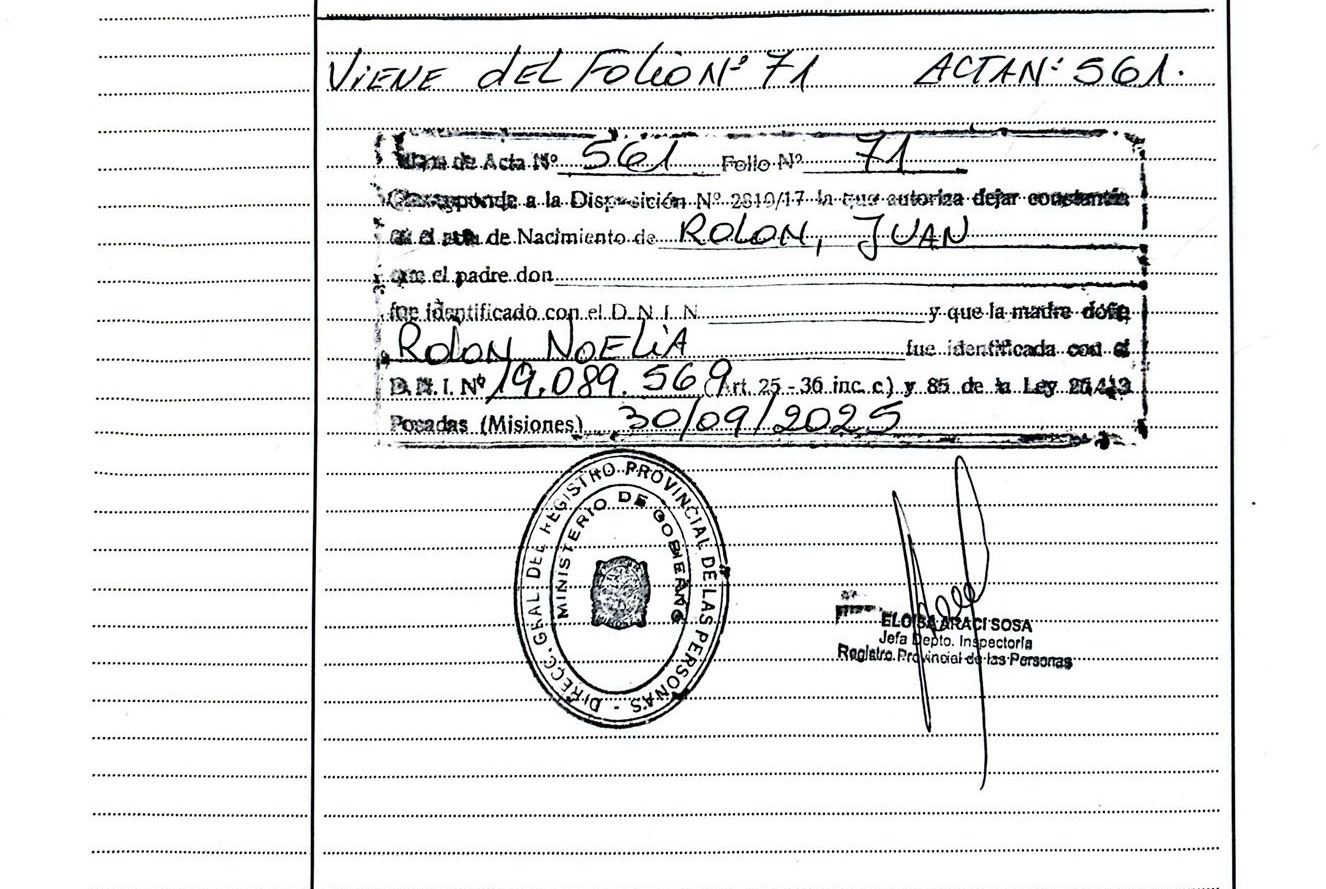 VIENE DEL FOLIO Nº 71 ACTA Nº 561.
de Acta Nº 561 Folio Nº 71
Corresponde a la Disposición Nº 2810/17 la que autoriza dejar constancia
en el acta de Nacimiento de ROLON, JUAN
que el padre don
fue identificado con el D.N.I. N y que la madre doña
ROLON NOELIA fue identificada con el
D.N.I. Nº 19.089.569 (Art. 25 - 36 inc. c) y 85 de la Ley 26.413
Posadas (Misiones) 30/09/2025
DIRECC. GRAL. DEL REGISTRO PROVINCIAL DE LAS PERSONAS -
MINISTERIO DE GOBIERNO
ELOISA ARACI SOSA
Jefa Depto. Inspectoría
Registro Provincial de las Personas